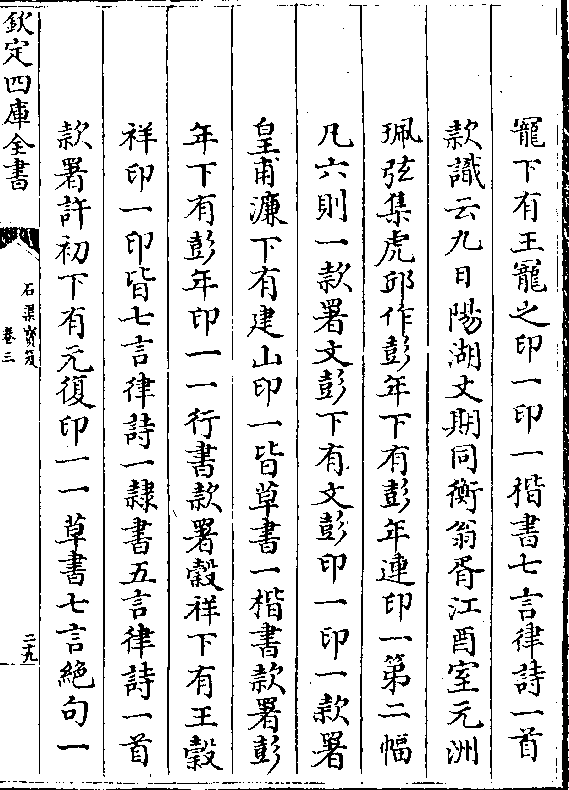 寵下有王寵之印一印一楷書七言律詩一首
款識云九日陽湖丈期同衡翁胥江酉室元洲
珮弦集虎邱作彭年下有彭年連印一第二幅
凡六則一款署文彭下有文彭印一印一款署
皇甫濂下有建山印一皆草書一楷書款署彭
年下有彭年印一一行書款署穀祥下有王穀
祥印一印皆七言律詩一隸書五言律詩一首
款署許初下有元復印一一草書七言絕句一
欽定四庫全書
石渠寶笈
卷三
二九